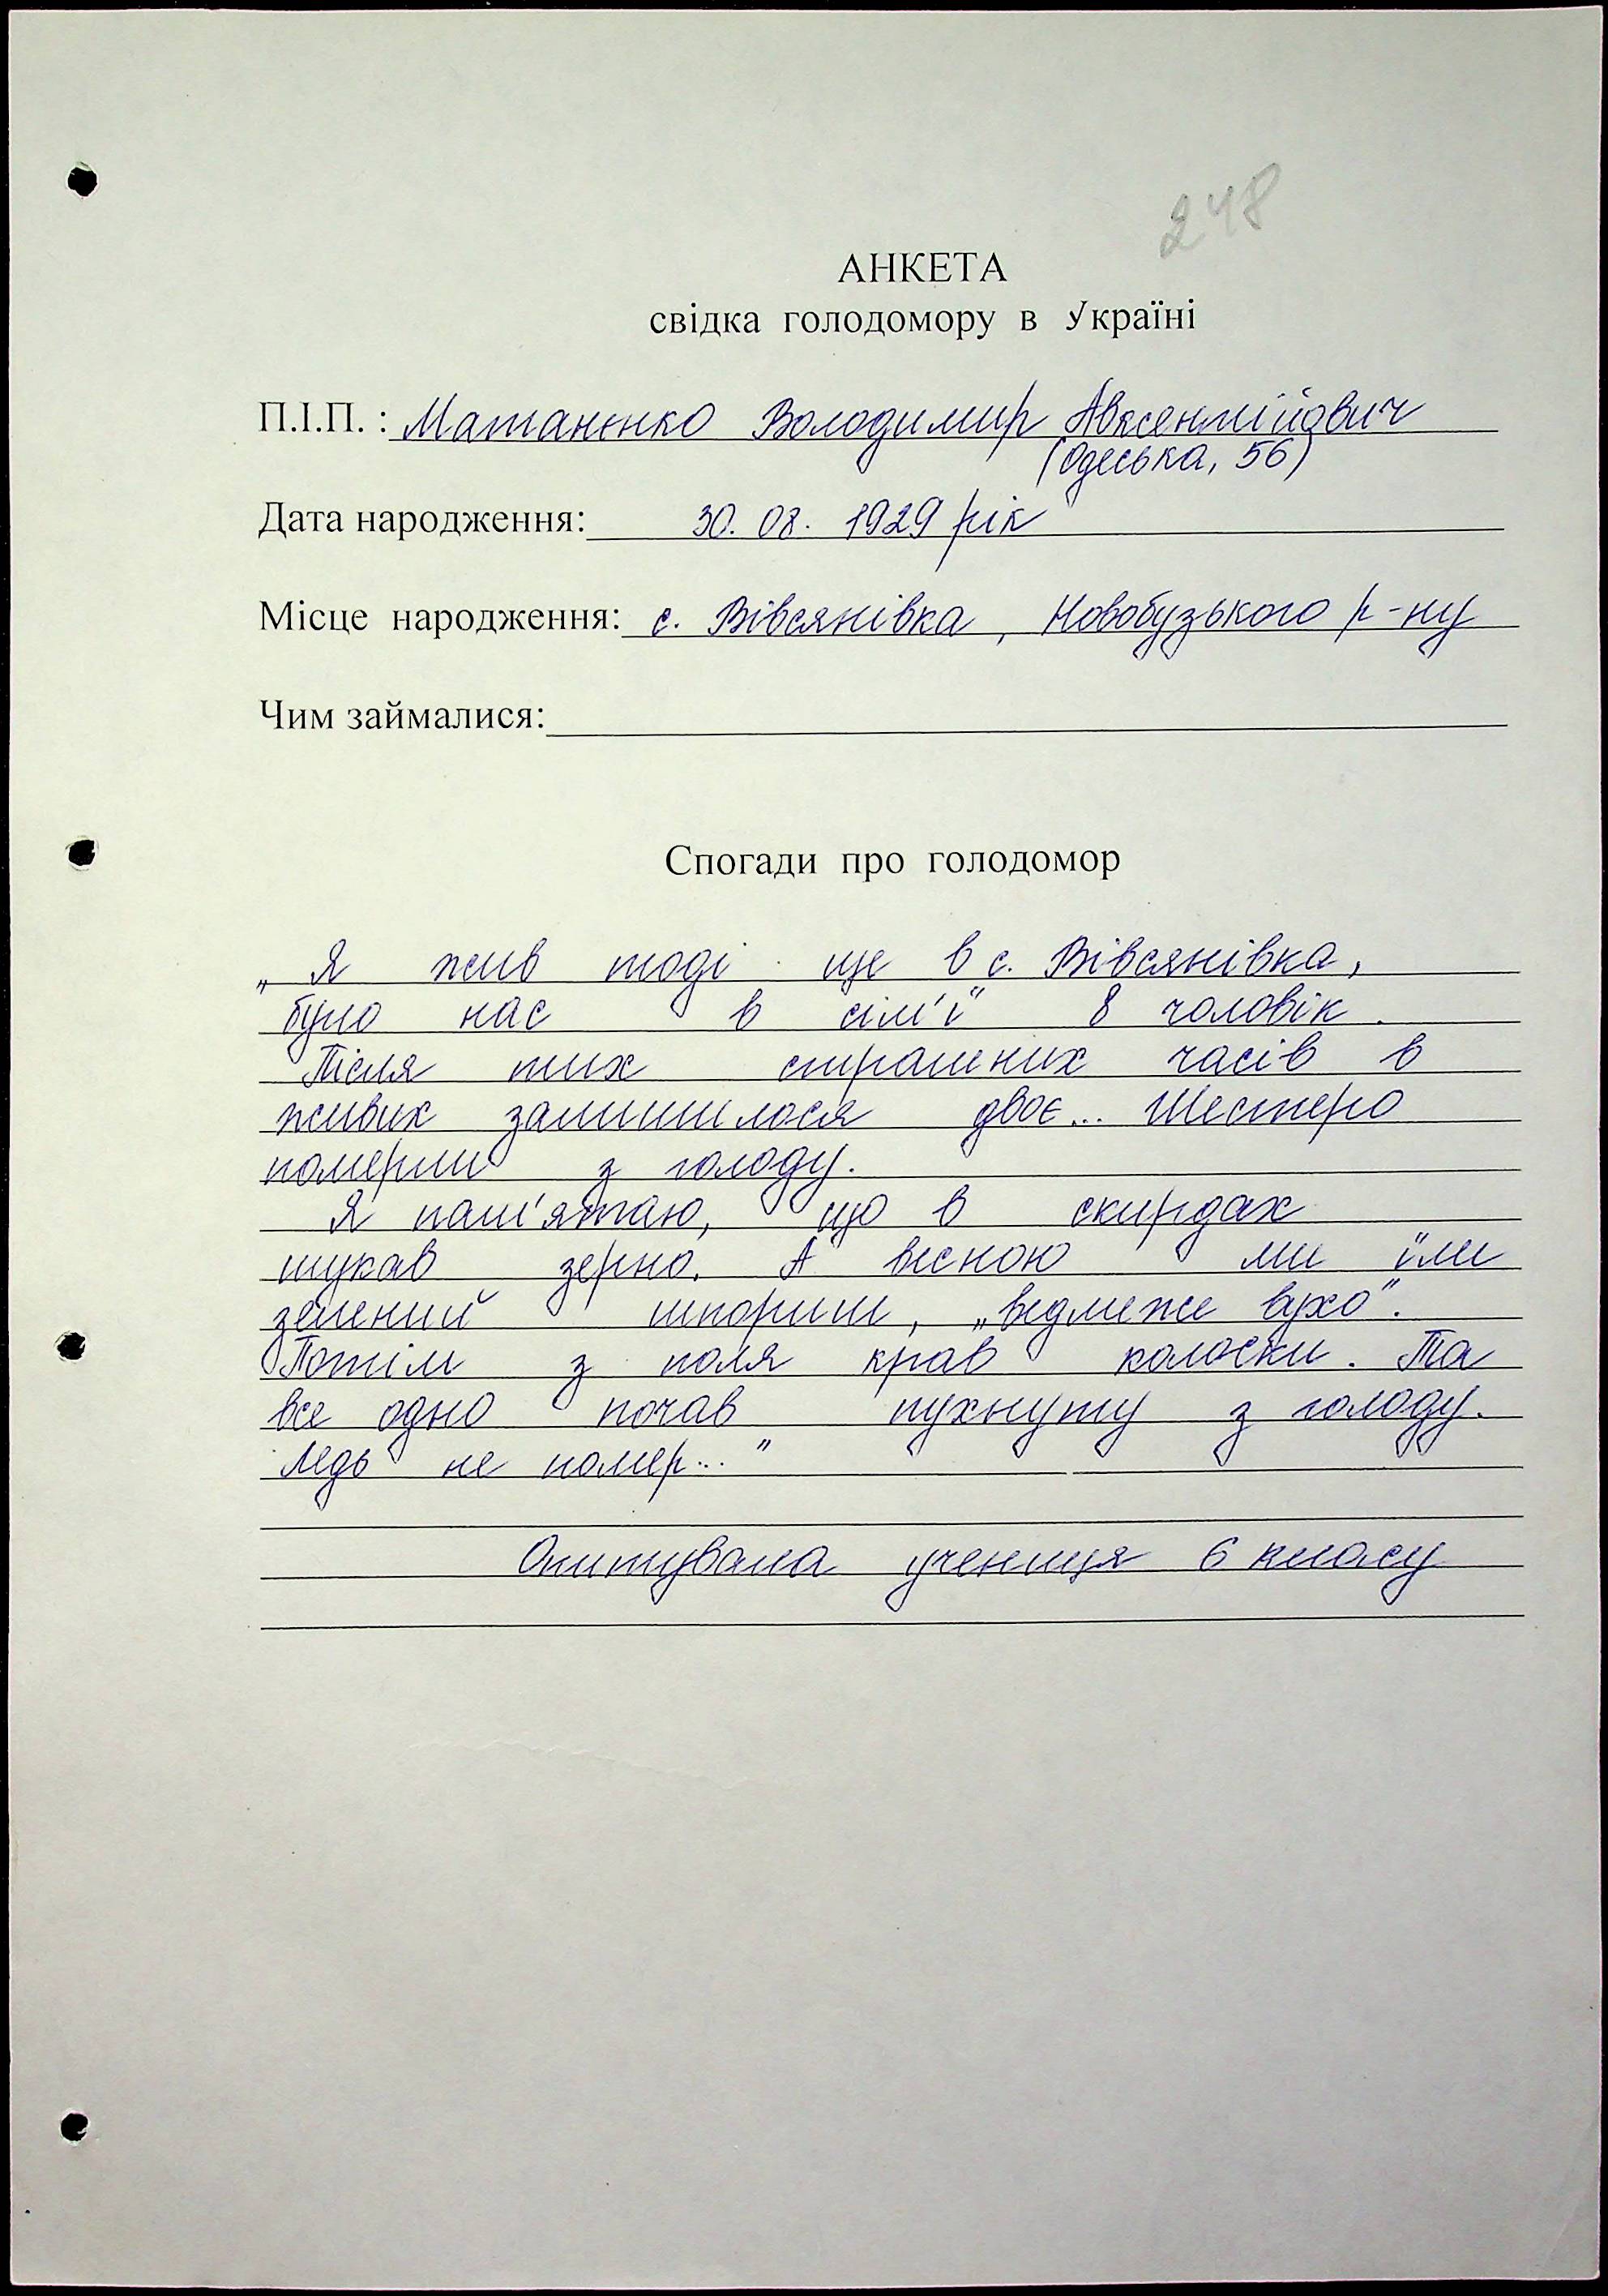 248
АНКЕТА
свідка голодомору в Україні
П.І.П. : Матанєнко Володимир Авксентійович
(Одеська, 56)
Дата народження: 30. 08. 1929 рік
Місце народження: с. Вівсянівка, Новобузького р-ну
Чим займалися:
Спогади про голодомор
„Я жив тоді ще в с. Вівсянівка,
було нас в сім'ї 8 чоловік.
Після тих страшних часів в
живих залишилося двоє... Шестеро
померли з голоду.
Я пам'ятаю, що в скирдах
шукав зерно. А весною ми їли
зелений шпориш, „ведмеже вухо".
Потім з поля крав колоски. Та
все одно почав пухнуту з голоду.
Ледь не помер..."
Опитувала учениця 6 класу